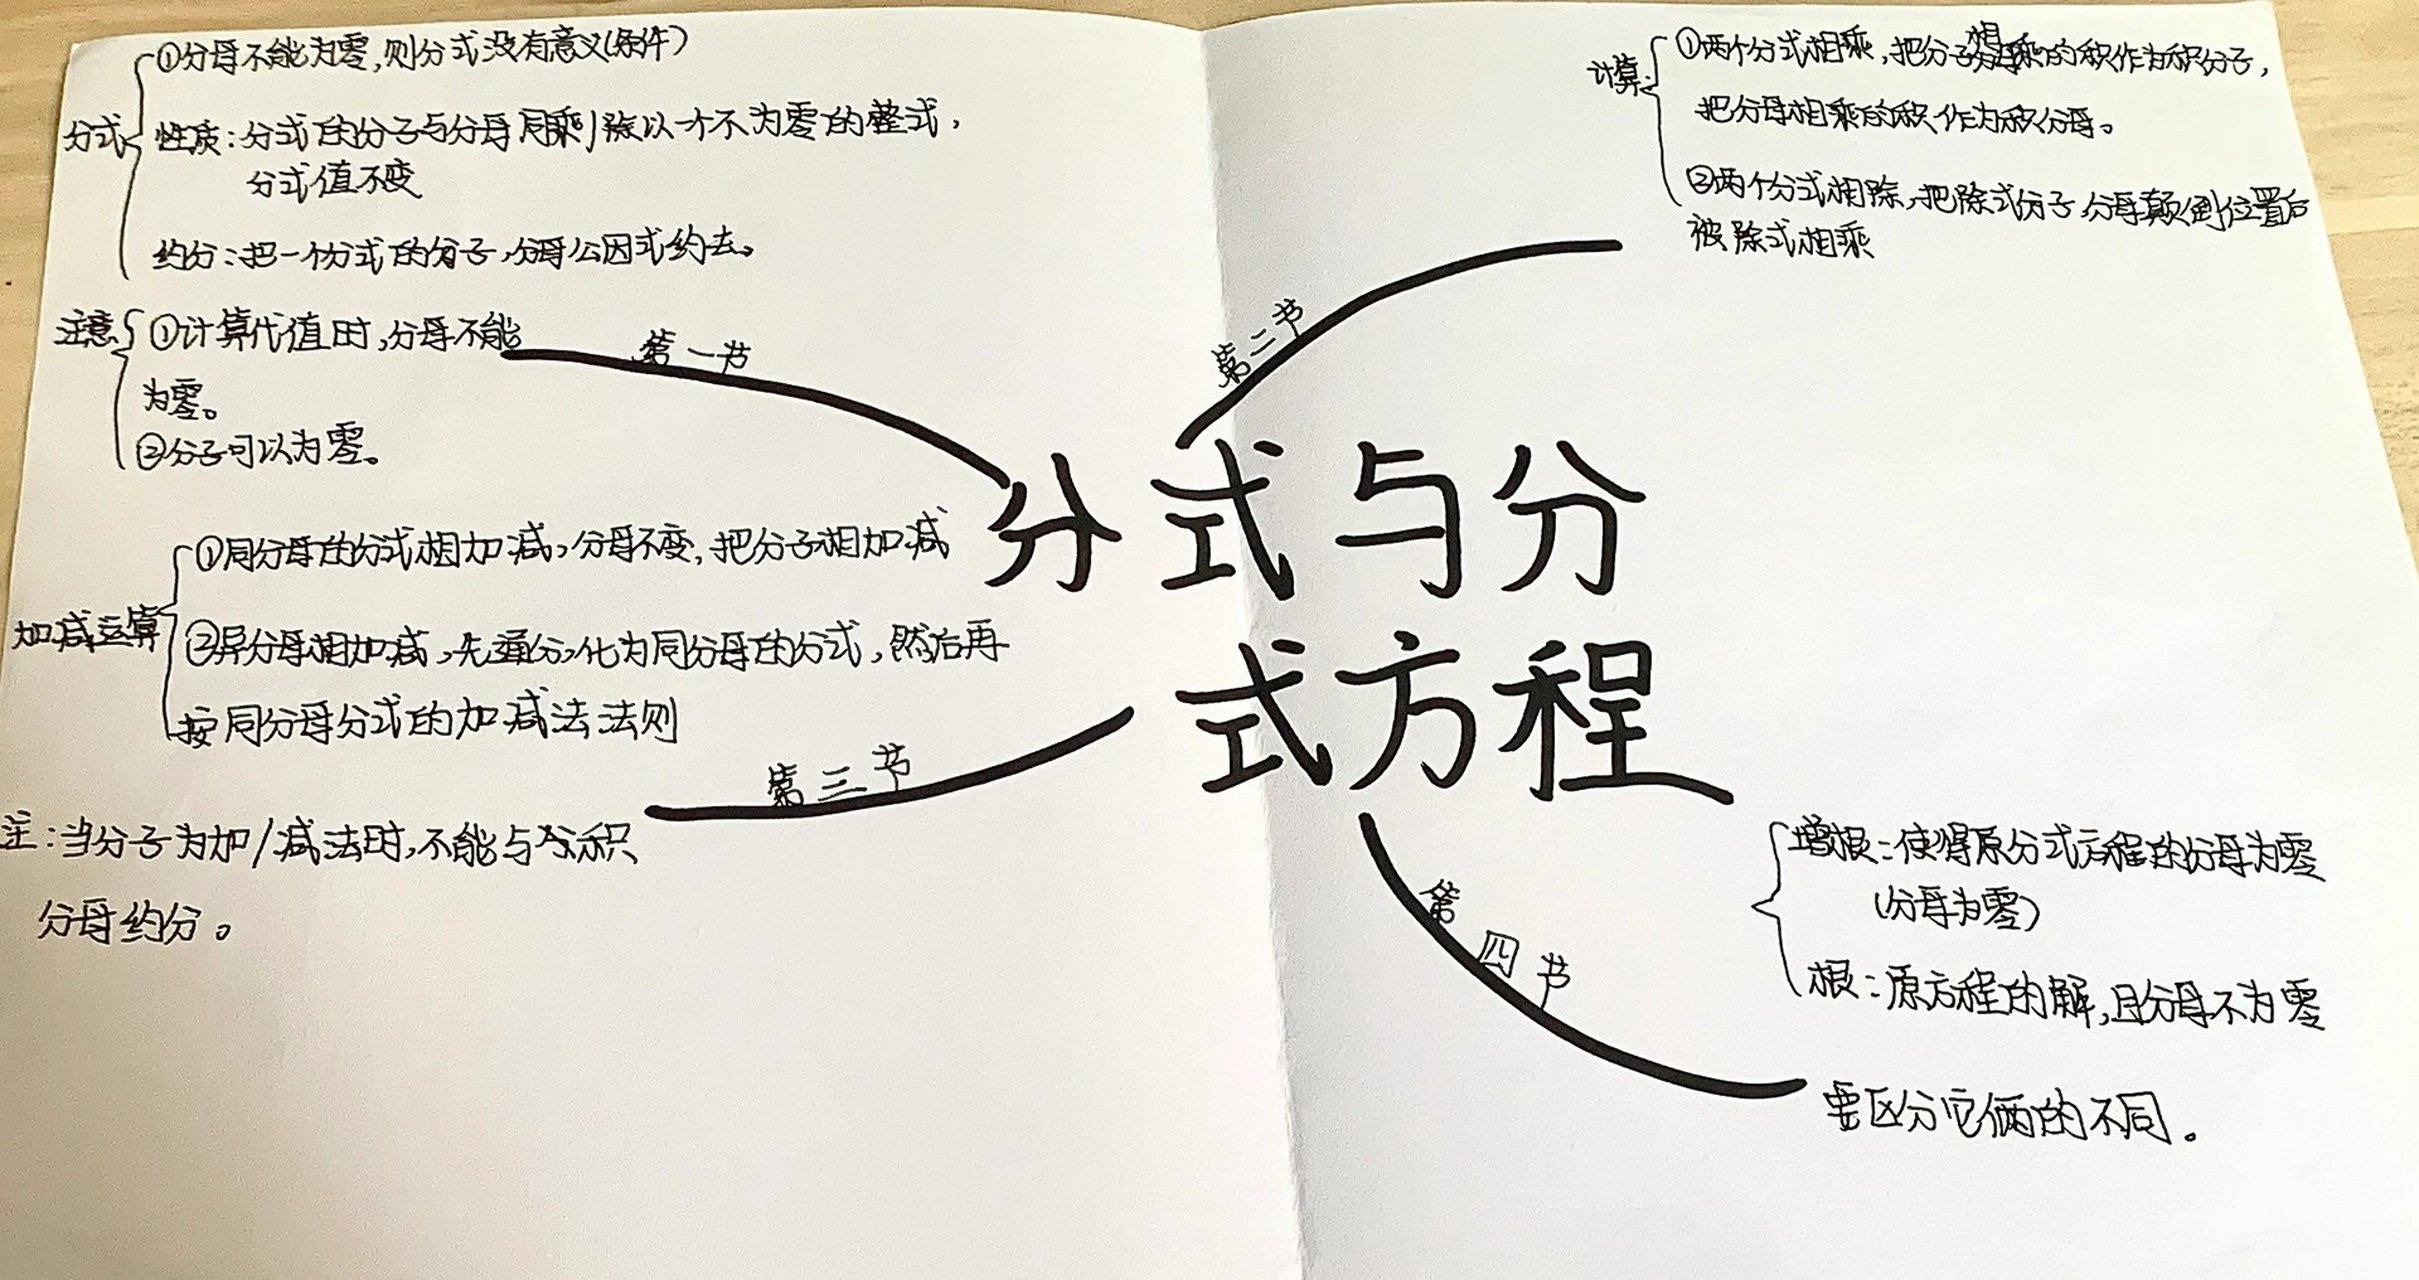 分式与分
式方程
第一节
分式
①分母不能为零,则分式没有意义(条件)
性质:分式的分子与分母同乘/除以一个不为零的整式,
分式值不变
约分:把一个分式的分子,分母公因式约去。
注意
①计算代值时,分母不能
为零。
②分子可以为零。
第二节
计算
①两个分式相乘,把分子相乘的积作为积分子,
把分母相乘的积作为积分母。
②两个分式相除,把除式分子,分母颠倒位置后
被除式相乘
第三节
加减运算
①同分母的分式相加减,分母不变,把分子相加减
②异分母相加减,先通分,化为同分母的分式,然后再
按同分母分式的加减法法则
注:当分子为加/减法时,不能与积
分母约分。
第四节
增根:使得原分式方程的分母为零
(分母为零)
根:原方程的解,且分母不为零
要区分它俩的不同。